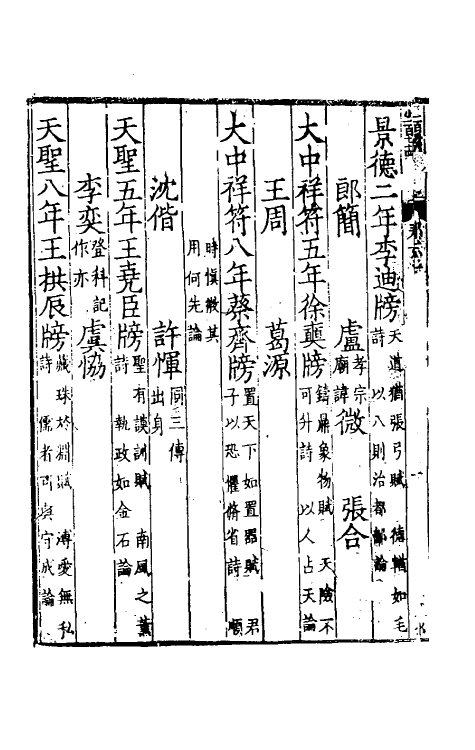 景德二年李迪牓 天道猶張弓賦 德輶如毛
詩 以八則治都鄙論
郎簡 盧 孝宗
廟諱 微 張合
大中祥符五年徐奭牓 鑄鼎象物賦 天險不
可升詩 以人占天論
王周 葛源
大中祥符八年蔡齊牓 置天下如置器賦 君
子以恐懼脩省詩 順
時慎微其
用何先論
沈偕 許惲 同三傳
出身
天聖五年王堯臣牓 聖有謨訓賦 南風之薰
詩 執政如金石論
李奕 登科記
作亦 虞協
天聖八年王拱辰牓 藏珠於淵賦 溥愛無私
詩 儒者可與守成論